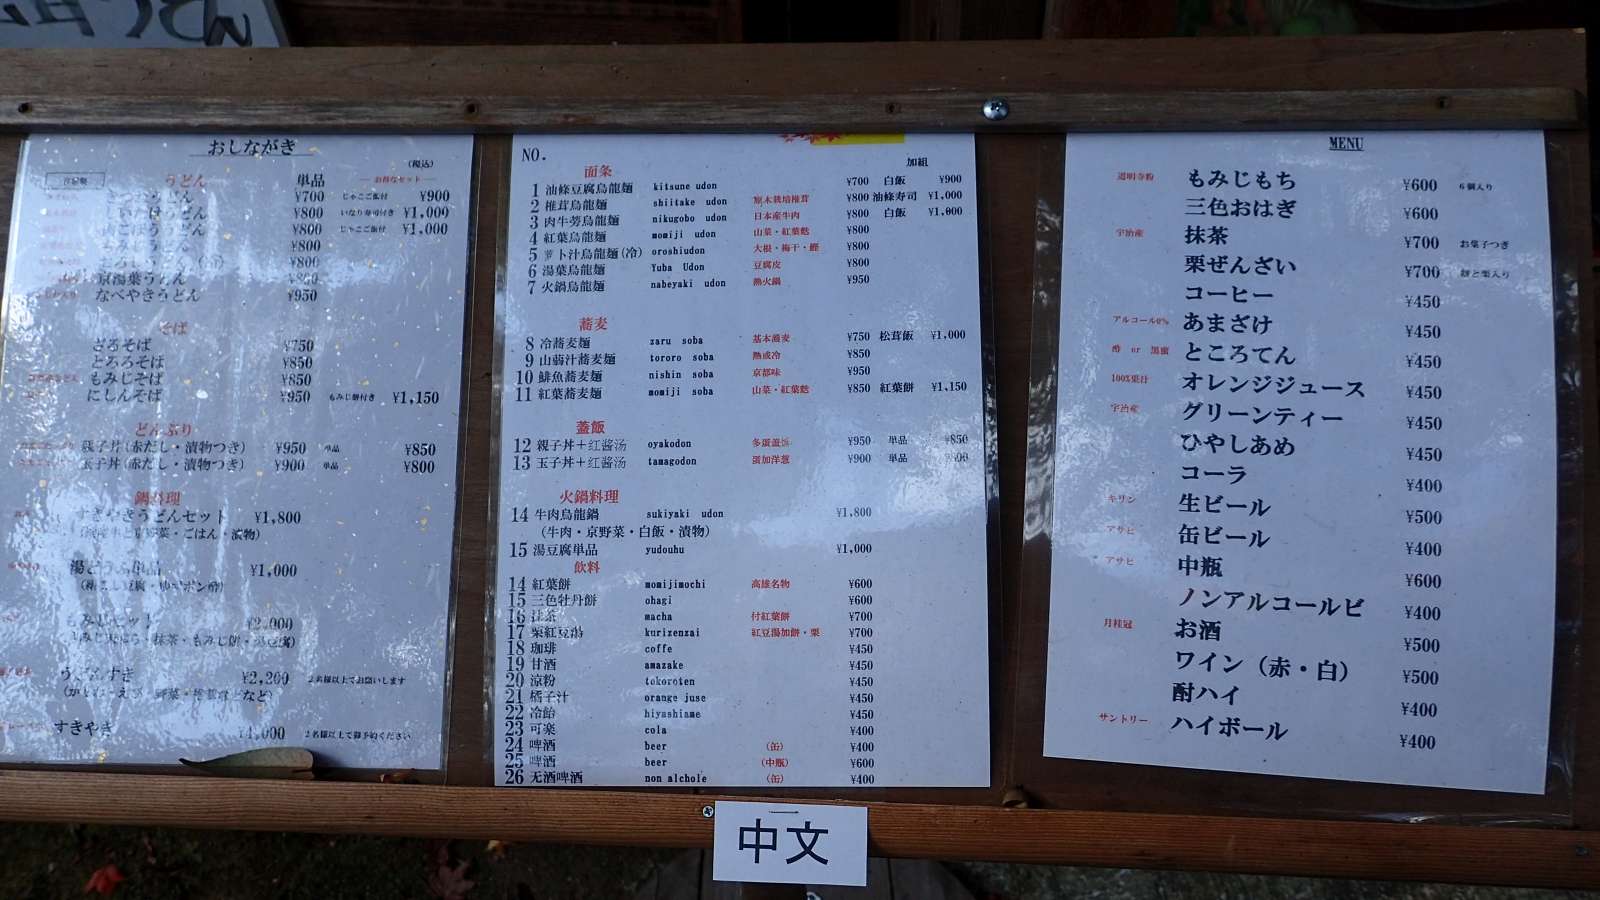 おしながき
(税込)
うどん 単品 お得なセット
¥700 じゃこご飯付 ¥900
¥800 いなり寿司付き ¥1,000
¥800 じゃこご飯付 ¥1,000
¥800
¥800
京湯葉うどん
なべやきうどん ¥950
そば
ざるそば ¥750
とろろそば ¥850
もみじそば ¥850
にしんそば ¥950 もみじ餅付き ¥1,150
どんぶり
親子丼(赤だし・漬物つき) ¥950 単品 ¥850
玉子丼(赤だし・漬物つき) ¥900 単品 ¥800
鍋料理
すきやきうどんセット ¥1,800
野菜・ごはん・漬物)
湯どうふ単品 ¥1,000
もみじセット ¥2,000
うどんすき ¥2,200 2名様以上でお願いします
すきやき 2名様以上で御予約ください
NO.
面条 加組
1 油條豆腐烏龍麺 kitsune udon ¥700 白飯 ¥900
2 椎茸烏龍麺 shiitake udon 原木栽培椎茸 ¥800 油條寿司 ¥1,000
3 肉牛蒡烏龍麺 nikugobo udon 日本産牛肉 ¥800 白飯 ¥1,000
4 紅葉烏龍麺 momiji udon 山菜・紅葉麩 ¥800
5 萝卜汁烏龍麺(冷) oroshiudon 大根・梅干・鰹 ¥800
6 湯葉烏龍麺 Yuba Udon 豆腐皮 ¥800
7 火鍋烏龍麺 nabeyaki udon 熱火鍋 ¥950
蕎麦
8 冷蕎麦麺 zaru soba 基本蕎麦 ¥750 松茸飯 ¥1,000
9 山蒟汁蕎麦麺 tororo soba 熟成冷 ¥850
10 鯡魚蕎麦麺 nishin soba 京都味 ¥950
11 紅葉蕎麦麺 momiji soba 山菜・紅葉麩 ¥850 紅葉餅 ¥1,150
蓋飯
12 親子丼+红酱汤 oyakodon 多蛋蓋飯 ¥950 単品 ¥850
13 玉子丼+红酱汤 tamagodon 蛋加洋葱 ¥900 単品 ¥800
火鍋料理
14 牛肉烏龍鍋 sukiyaki udon ¥1,800
(牛肉・京野菜・白飯・漬物)
15 湯豆腐単品 yudouhu ¥1,000
飲料
14 紅葉餅 momijimochi 高雄名物 ¥600
15 三色牡丹餅 ohagi ¥600
16 抹茶 macha 付紅葉餅 ¥700
17 栗紅豆湯 kurizenzai 紅豆湯加餅・栗 ¥700
18 珈琲 coffe ¥450
19 甘酒 amazake ¥450
20 涼粉 tokoroten ¥450
21 橘子汁 orange juse ¥450
22 冷飴 hiyashiame ¥450
23 可楽 cola ¥400
24 啤酒 beer (缶) ¥400
25 啤酒 beer (中瓶) ¥600
26 无酒啤酒 non alchole (缶) ¥400
MENU
道明寺粉 もみじもち ¥600 6個入り
三色おはぎ ¥600
宇治産 抹茶 ¥700 お菓子つき
栗ぜんざい ¥700 餅と栗入り
コーヒー ¥450
アルコール0% あまざけ ¥450
酢 or 黒蜜 ところてん ¥450
100%果汁 オレンジジュース ¥450
宇治産 グリーンティー ¥450
ひやしあめ ¥450
コーラ ¥400
キリン 生ビール ¥500
アサヒ 缶ビール ¥400
アサヒ 中瓶 ¥600
ノンアルコールビ ¥400
月桂冠 お酒 ¥500
ワイン(赤・白) ¥500
酎ハイ ¥400
サントリー ハイボール ¥400
中文